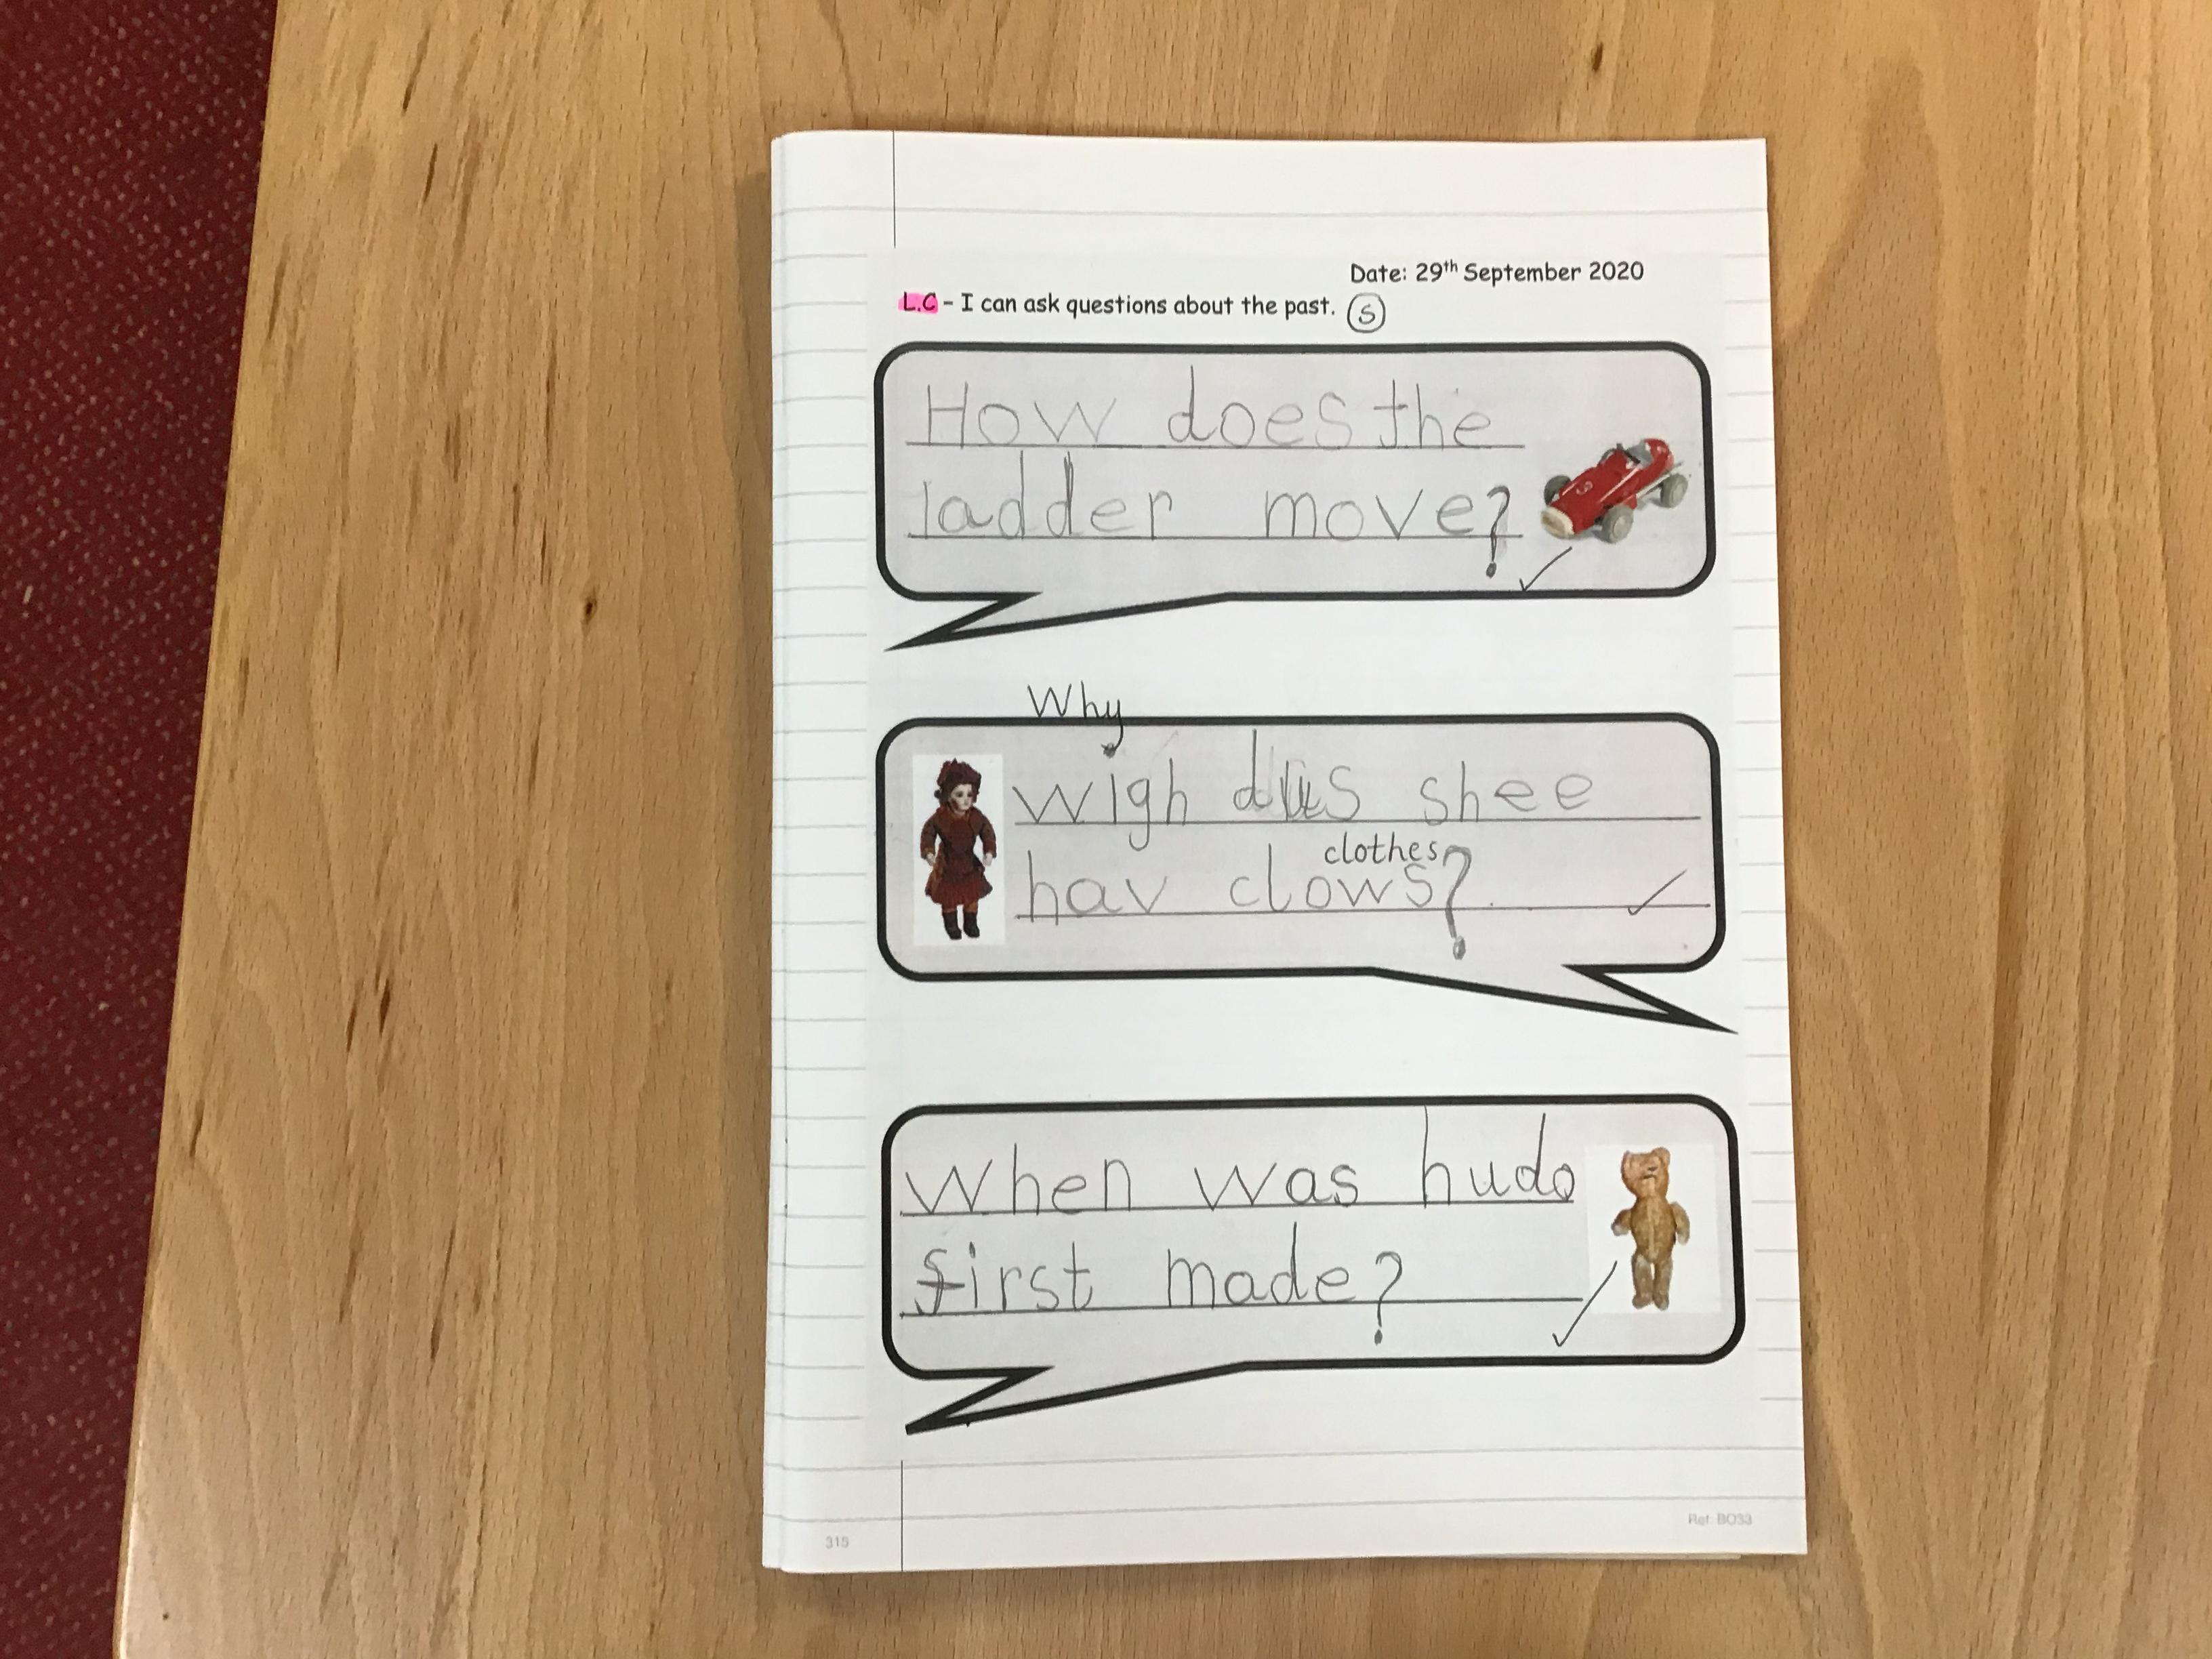 Date: 29th September 2020
L.C - I can ask questions about the past. S
How does the
ladder move?
3
Why
wigh dus shee
clothes
hav clows?
When was hudo
first made?
315
Ref: BO33